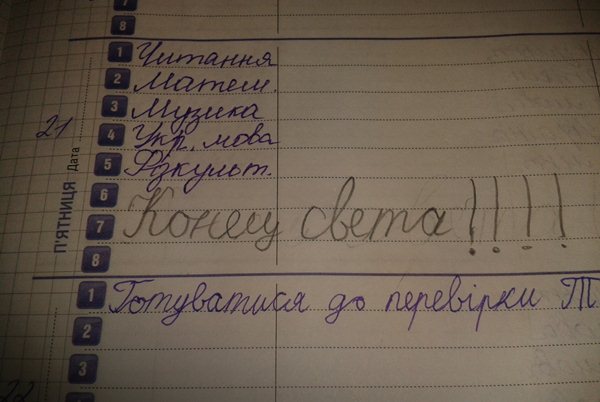 7
8
1 Читання
2 Матем.
3 Музика
21 Дата 4 Укр. мова
5 Фізкульт.
6
П'ЯТНИЦЯ 7 Конец света!!!!
8
1 Готуватися до перевірки Т
2
3
22